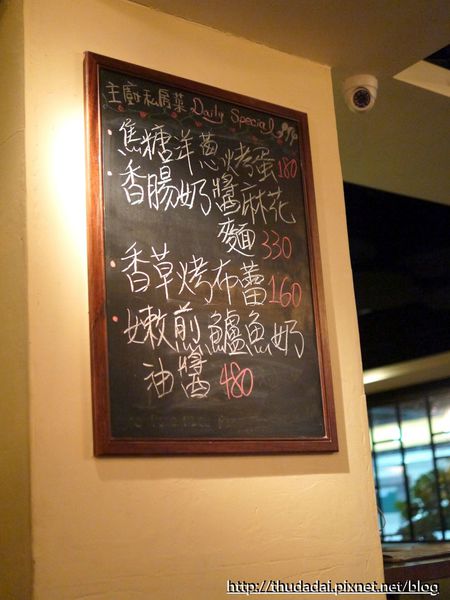 主廚私房菜 Daily Special
焦糖洋蔥烤蛋180
香腸奶醬麻花
麵330
香草烤布蕾160
嫩煎鱸魚奶
油醬480
http://thudadai.pixnet.net/blog